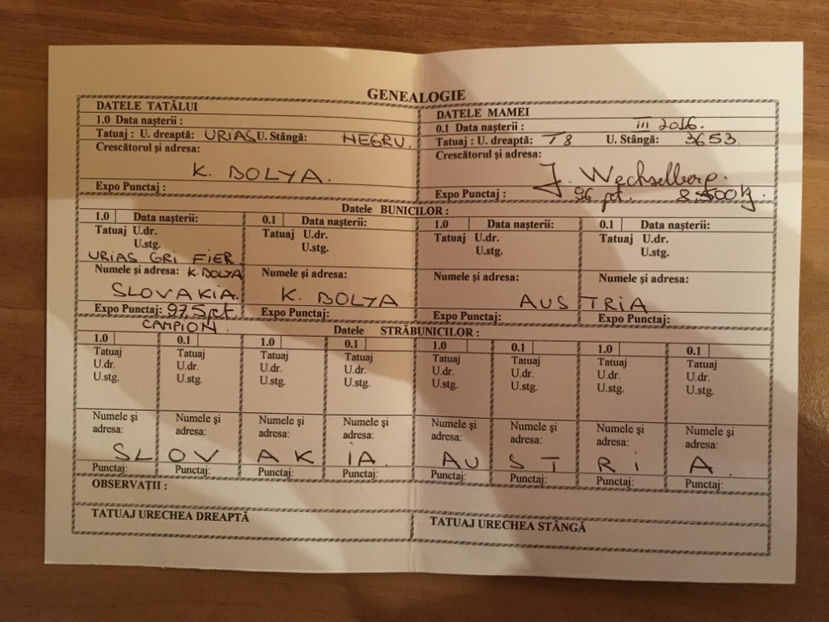 GENEALOGIE
DATELE TATĂLUI
1.0 Data nașterii :
Tatuaj : U. dreaptă: URIAS U. Stângă: NEGRU.
Crescătorul și adresa:
K. BOLYA.
Expo Punctaj :
DATELE MAMEI
0.1 Data nașterii : III 2016.
Tatuaj : U. dreaptă: T8 U. Stângă: 3653.
Crescătorul și adresa:
J. Wechselberg.
Expo Punctaj : 96 pct. 8,500 kg.
Datele BUNICILOR :
1.0 Data nașterii:
Tatuaj U.dr.
U.stg.
URIAS GRI FIER.
Numele și adresa: K. BOLYA
SLOVAKIA.
Expo Punctaj: 97.5 pct.
CAMPION.
0.1 Data nașterii:
Tatuaj U.dr.
U.stg.
Numele și adresa:
K. BOLYA
Expo Punctaj:
1.0 Data nașterii:
Tatuaj U.dr.
U.stg.
Numele și adresa:
0.1 Data nașterii:
Tatuaj U.dr.
U.stg.
Numele și adresa:
AUSTRIA
Expo Punctaj: Expo Punctaj:
Datele STRĂBUNICILOR :
1.0 0.1 1.0 0.1 1.0 0.1 1.0 0.1
Tatuaj Tatuaj Tatuaj Tatuaj Tatuaj Tatuaj Tatuaj Tatuaj
U.dr. U.dr. U.dr. U.dr. U.dr. U.dr. U.dr. U.dr.
U.stg. U.stg. U.stg. U.stg. U.stg. U.stg. U.stg. U.stg.
Numele și Numele și Numele și Numele și Numele și Numele și Numele și Numele și
adresa: adresa: adresa: adresa: adresa: adresa: adresa: adresa:
SLOVAKIA. AUSTRIA.
Punctaj: Punctaj: Punctaj: Punctaj: Punctaj: Punctaj: Punctaj: Punctaj:
OBSERVAȚII :
TATUAJ URECHEA DREAPTĂ
TATUAJ URECHEA STÂNGĂ